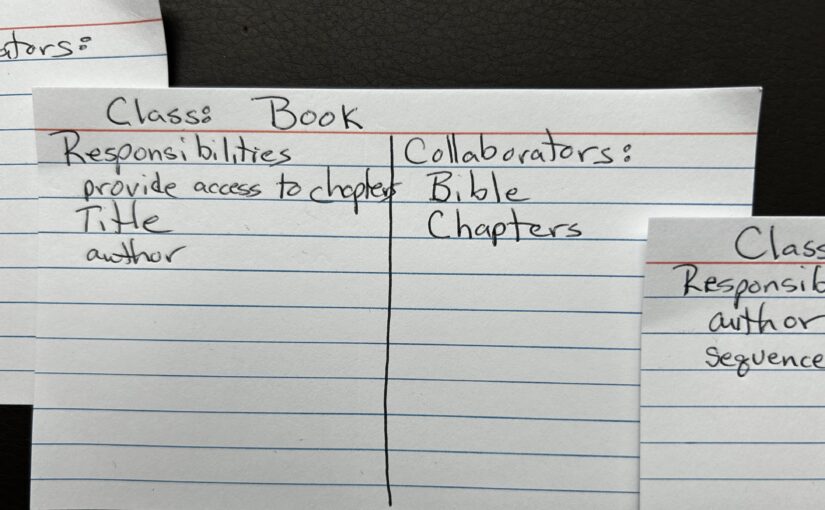 Class: Book
Responsibilities
provide access to chapters
Title
author
Collaborators:
Bible
Chapters
Class
Responsib
author
sequence